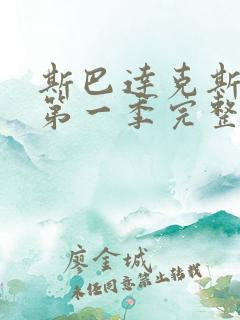 斯巴达克斯
第一季完整
廖金城
未经同意禁止转载